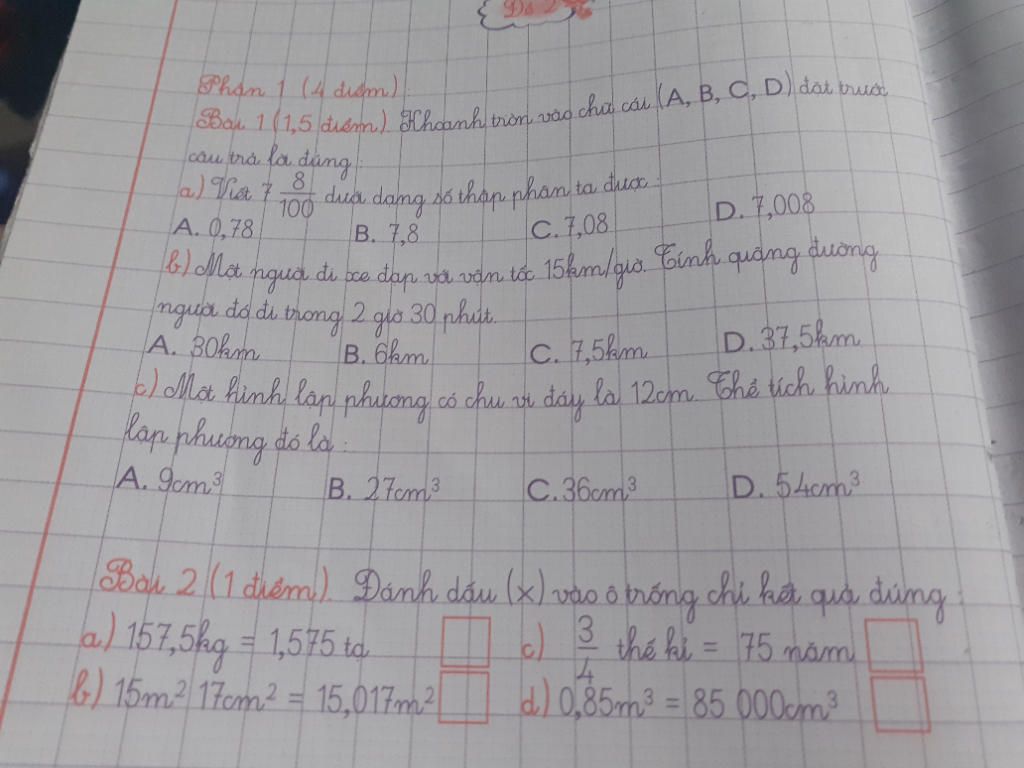 Đề 2
Phần 1 (4 điểm)
Bài 1 (1,5 điểm) Khoanh tròn vào chữ cái (A, B, C, D) đặt trước
câu trả lời đúng:
a) Viết 7 8/100 dưới dạng số thập phân ta được:
A. 0,78 B. 7,8 C. 7,08 D. 7,008
b) Một người đi xe đạp với vận tốc 15km/giờ. Tính quãng đường
người đó đi trong 2 giờ 30 phút.
A. 30km B. 6km C. 7,5km D. 37,5km
c) Một hình lập phương có chu vi đáy là 12cm. Thể tích hình
lập phương đó là:
A. 9cm³ B. 27cm³ C. 36cm³ D. 54cm³
Bài 2 (1 điểm). Đánh dấu (x) vào ô trống chỉ kết quả đúng:
a) 157,5kg = 1,575 tạ c) 3/4 thế kỉ = 75 năm
b) 15m² 17cm² = 15,017m² d) 0,85m³ = 85 000cm³